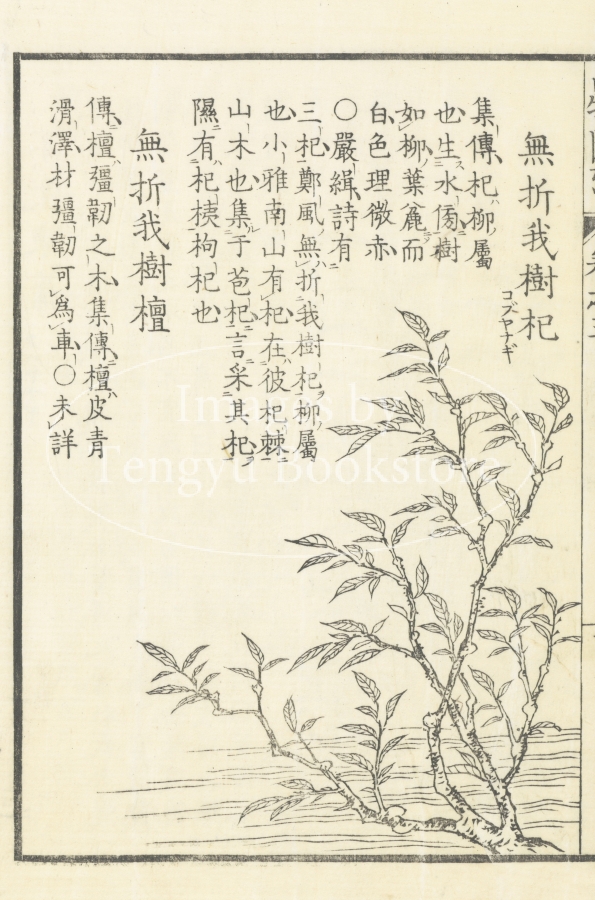 無折我樹杞
コブヤナギ
集傳杞柳屬
也生水傍樹
如柳葉麁而
白色理微赤
〇嚴緝詩有
三杞鄭風無折我樹杞柳屬
也小雅南山有杞在彼杞棘
山木也集于苞杞言采其杞
隰有杞桋枸杞也
無折我樹檀
傳檀彊韌之木集傳檀皮青
滑澤材彊韌可爲車〇未詳
Images by
Tengyu Bookstore